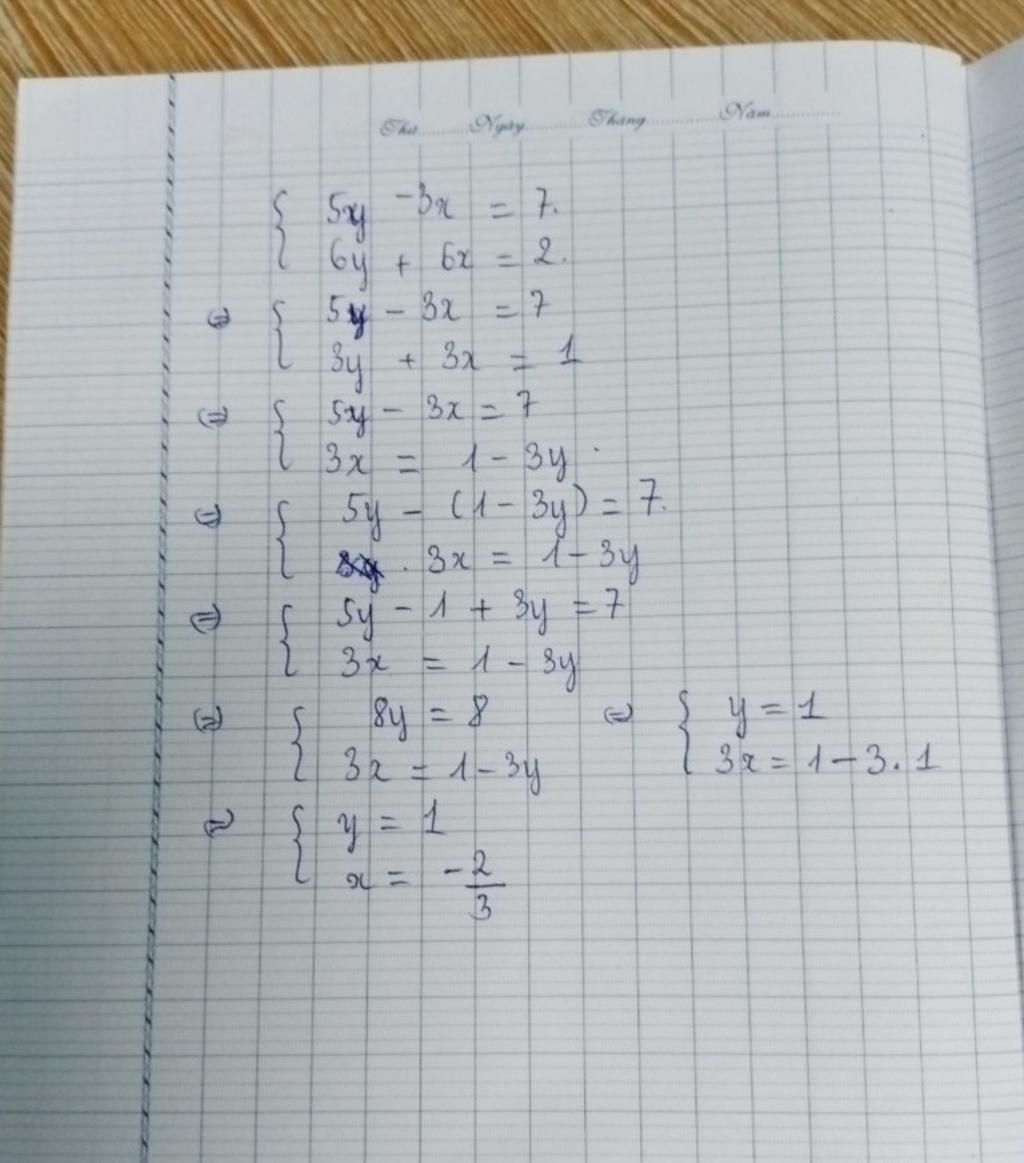 Thứ Ngày Tháng Năm
{ 5y - 3x = 7.
6y + 6x = 2.
⇔ { 5y - 3x = 7
3y + 3x = 1
⇔ { 5y - 3x = 7
3x = 1 - 3y.
⇔ { 5y - (1 - 3y) = 7.
3x = 1 - 3y
⇔ { 5y - 1 + 3y = 7
3x = 1 - 3y
⇔ { 8y = 8 ⇔ { y = 1
3x = 1 - 3y 3x = 1 - 3.1
⇔ { y = 1
x = -2/3